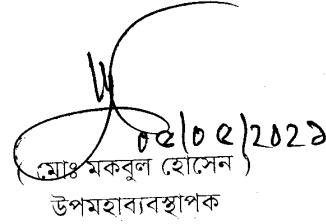 ০৫/০৫/২০২১
( মোঃ মকবুল হোসেন )
উপমহাব্যবস্থাপক